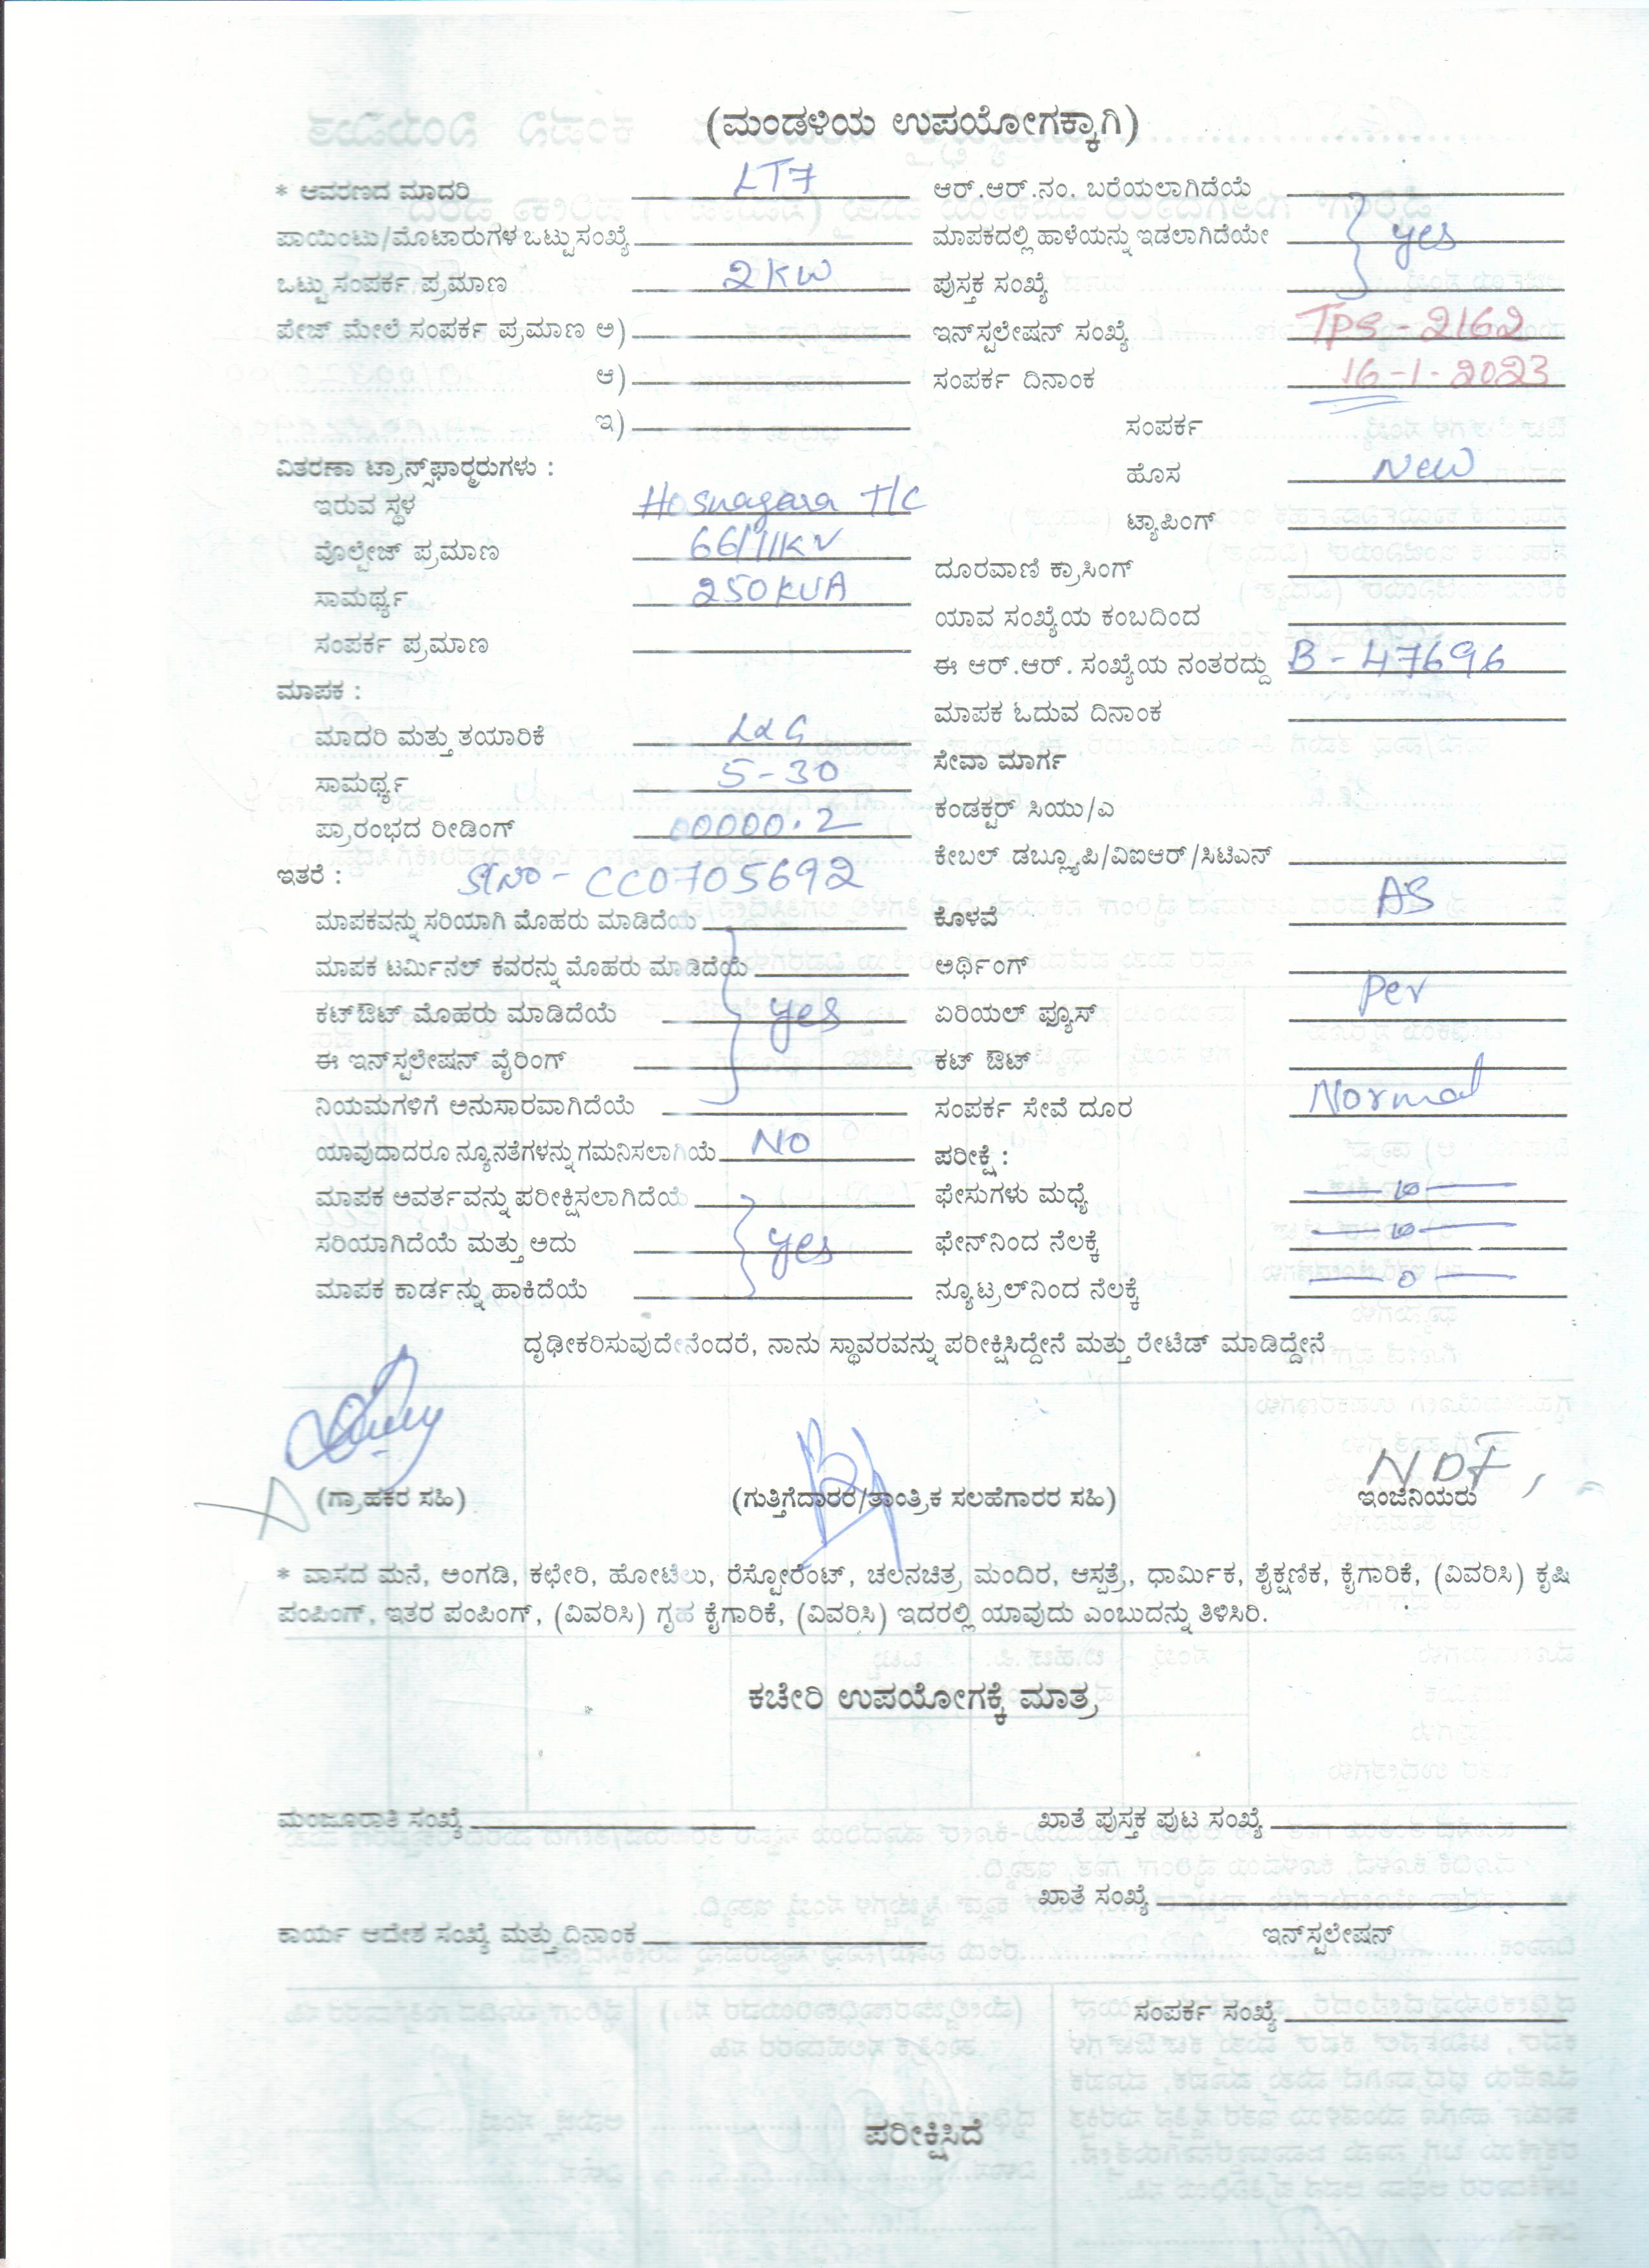 (ಮಂಡಳಿಯ ಉಪಯೋಗಕ್ಕಾಗಿ)
* ಆವರಣದ ಮಾದರಿ LT7 ಆರ್.ಆರ್.ನಂ. ಬರೆಯಲಾಗಿದೆಯೆ
ಪಾಯಿಂಟು/ಮೊಟಾರುಗಳ ಒಟ್ಟು ಸಂಖ್ಯೆ ಮಾಪಕದಲ್ಲಿ ಹಾಳೆಯನ್ನು ಇಡಲಾಗಿದೆಯೇ yes
ಒಟ್ಟು ಸಂಪರ್ಕ ಪ್ರಮಾಣ 2KW ಪುಸ್ತಕ ಸಂಖ್ಯೆ
ಪೇಜ್ ಮೇಲೆ ಸಂಪರ್ಕ ಪ್ರಮಾಣ ಅ) ಇನ್‌ಸ್ಟಲೇಷನ್ ಸಂಖ್ಯೆ TPS - 2162
ಆ) ಸಂಪರ್ಕ ದಿನಾಂಕ 16-1-2023
ಇ) ಸಂಪರ್ಕ
ವಿತರಣಾ ಟ್ರಾನ್ಸ್‌ಫಾರ್ಮರುಗಳು : ಹೊಸ New
ಇರುವ ಸ್ಥಳ Hosnagara T/C ಟ್ಯಾಪಿಂಗ್
ವೊಲ್ಟೇಜ್ ಪ್ರಮಾಣ 66/11KV ದೂರವಾಣಿ ಕ್ರಾಸಿಂಗ್
ಸಾಮರ್ಥ್ಯ 250KVA ಯಾವ ಸಂಖ್ಯೆಯ ಕಂಬದಿಂದ
ಸಂಪರ್ಕ ಪ್ರಮಾಣ ಈ ಆರ್.ಆರ್. ಸಂಖ್ಯೆಯ ನಂತರದ್ದು B - 47696
ಮಾಪಕ : ಮಾಪಕ ಓದುವ ದಿನಾಂಕ
ಮಾದರಿ ಮತ್ತು ತಯಾರಿಕೆ L&G ಸೇವಾ ಮಾರ್ಗ
ಸಾಮರ್ಥ್ಯ 5-30 ಕಂಡಕ್ಟರ್ ಸಿಯು/ಎ
ಪ್ರಾರಂಭದ ರೀಡಿಂಗ್ 00000.2 ಕೇಬಲ್ ಡಬ್ಲ್ಯೂಪಿ/ವಿಐಆರ್/ಸಿಟಿಎನ್
ಇತರೆ : Sl No - CC0705692
ಮಾಪಕವನ್ನು ಸರಿಯಾಗಿ ಮೊಹರು ಮಾಡಿದೆಯೆ ಕೊಳವೆ AS
ಮಾಪಕ ಟರ್ಮಿನಲ್ ಕವರನ್ನು ಮೊಹರು ಮಾಡಿದೆಯೆ ಅರ್ಥಿಂಗ್
ಕಟ್‌ಔಟ್ ಮೊಹರು ಮಾಡಿದೆಯೆ yes ಏರಿಯಲ್ ಫ್ಯೂಸ್ Per
ಈ ಇನ್‌ಸ್ಟಲೇಷನ್ ವೈರಿಂಗ್ ಕಟ್ ಔಟ್
ನಿಯಮಗಳಿಗೆ ಅನುಸಾರವಾಗಿದೆಯೆ ಸಂಪರ್ಕ ಸೇವೆ ದೂರ Normal
ಯಾವುದಾದರೂ ನ್ಯೂನತೆಗಳನ್ನು ಗಮನಿಸಲಾಗಿಯೆ NO ಪರೀಕ್ಷೆ :
ಮಾಪಕ ಅವರ್ತವನ್ನು ಪರೀಕ್ಷಿಸಲಾಗಿದೆಯೆ ಫೇಸುಗಳು ಮಧ್ಯೆ
ಸರಿಯಾಗಿದೆಯೆ ಮತ್ತು ಅದು yes ಫೇನ್‌ನಿಂದ ನೆಲಕ್ಕೆ
ಮಾಪಕ ಕಾರ್ಡನ್ನು ಹಾಕಿದೆಯೆ ನ್ಯೂಟ್ರಲ್‌ನಿಂದ ನೆಲಕ್ಕೆ 0
ದೃಢೀಕರಿಸುವುದೇನೆಂದರೆ, ನಾನು ಸ್ಥಾವರವನ್ನು ಪರೀಕ್ಷಿಸಿದ್ದೇನೆ ಮತ್ತು ರೇಟೆಡ್ ಮಾಡಿದ್ದೇನೆ
NDF,
(ಗ್ರಾಹಕರ ಸಹಿ) (ಗುತ್ತಿಗೆದಾರರ/ತಾಂತ್ರಿಕ ಸಲಹೆಗಾರರ ಸಹಿ) ಇಂಜಿನಿಯರು
* ವಾಸದ ಮನೆ, ಅಂಗಡಿ, ಕಛೇರಿ, ಹೋಟೆಲು, ರೆಸ್ಟೋರೆಂಟ್, ಚಲನಚಿತ್ರ ಮಂದಿರ, ಆಸ್ಪತ್ರೆ, ಧಾರ್ಮಿಕ, ಶೈಕ್ಷಣಿಕ, ಕೈಗಾರಿಕೆ, (ವಿವರಿಸಿ) ಕೃಷಿ
ಪಂಪಿಂಗ್, ಇತರ ಪಂಪಿಂಗ್, (ವಿವರಿಸಿ) ಗೃಹ ಕೈಗಾರಿಕೆ, (ವಿವರಿಸಿ) ಇದರಲ್ಲಿ ಯಾವುದು ಎಂಬುದನ್ನು ತಿಳಿಸಿರಿ.
ಕಚೇರಿ ಉಪಯೋಗಕ್ಕೆ ಮಾತ್ರ
ಮಂಜೂರಾತಿ ಸಂಖ್ಯೆ ಖಾತೆ ಪುಸ್ತಕ ಪುಟ ಸಂಖ್ಯೆ
ಖಾತೆ ಸಂಖ್ಯೆ
ಕಾರ್ಯ ಆದೇಶ ಸಂಖ್ಯೆ ಮತ್ತು ದಿನಾಂಕ ಇನ್‌ಸ್ಟಲೇಷನ್
ಸಂಪರ್ಕ ಸಂಖ್ಯೆ
ಪರೀಕ್ಷಿಸಿದೆ